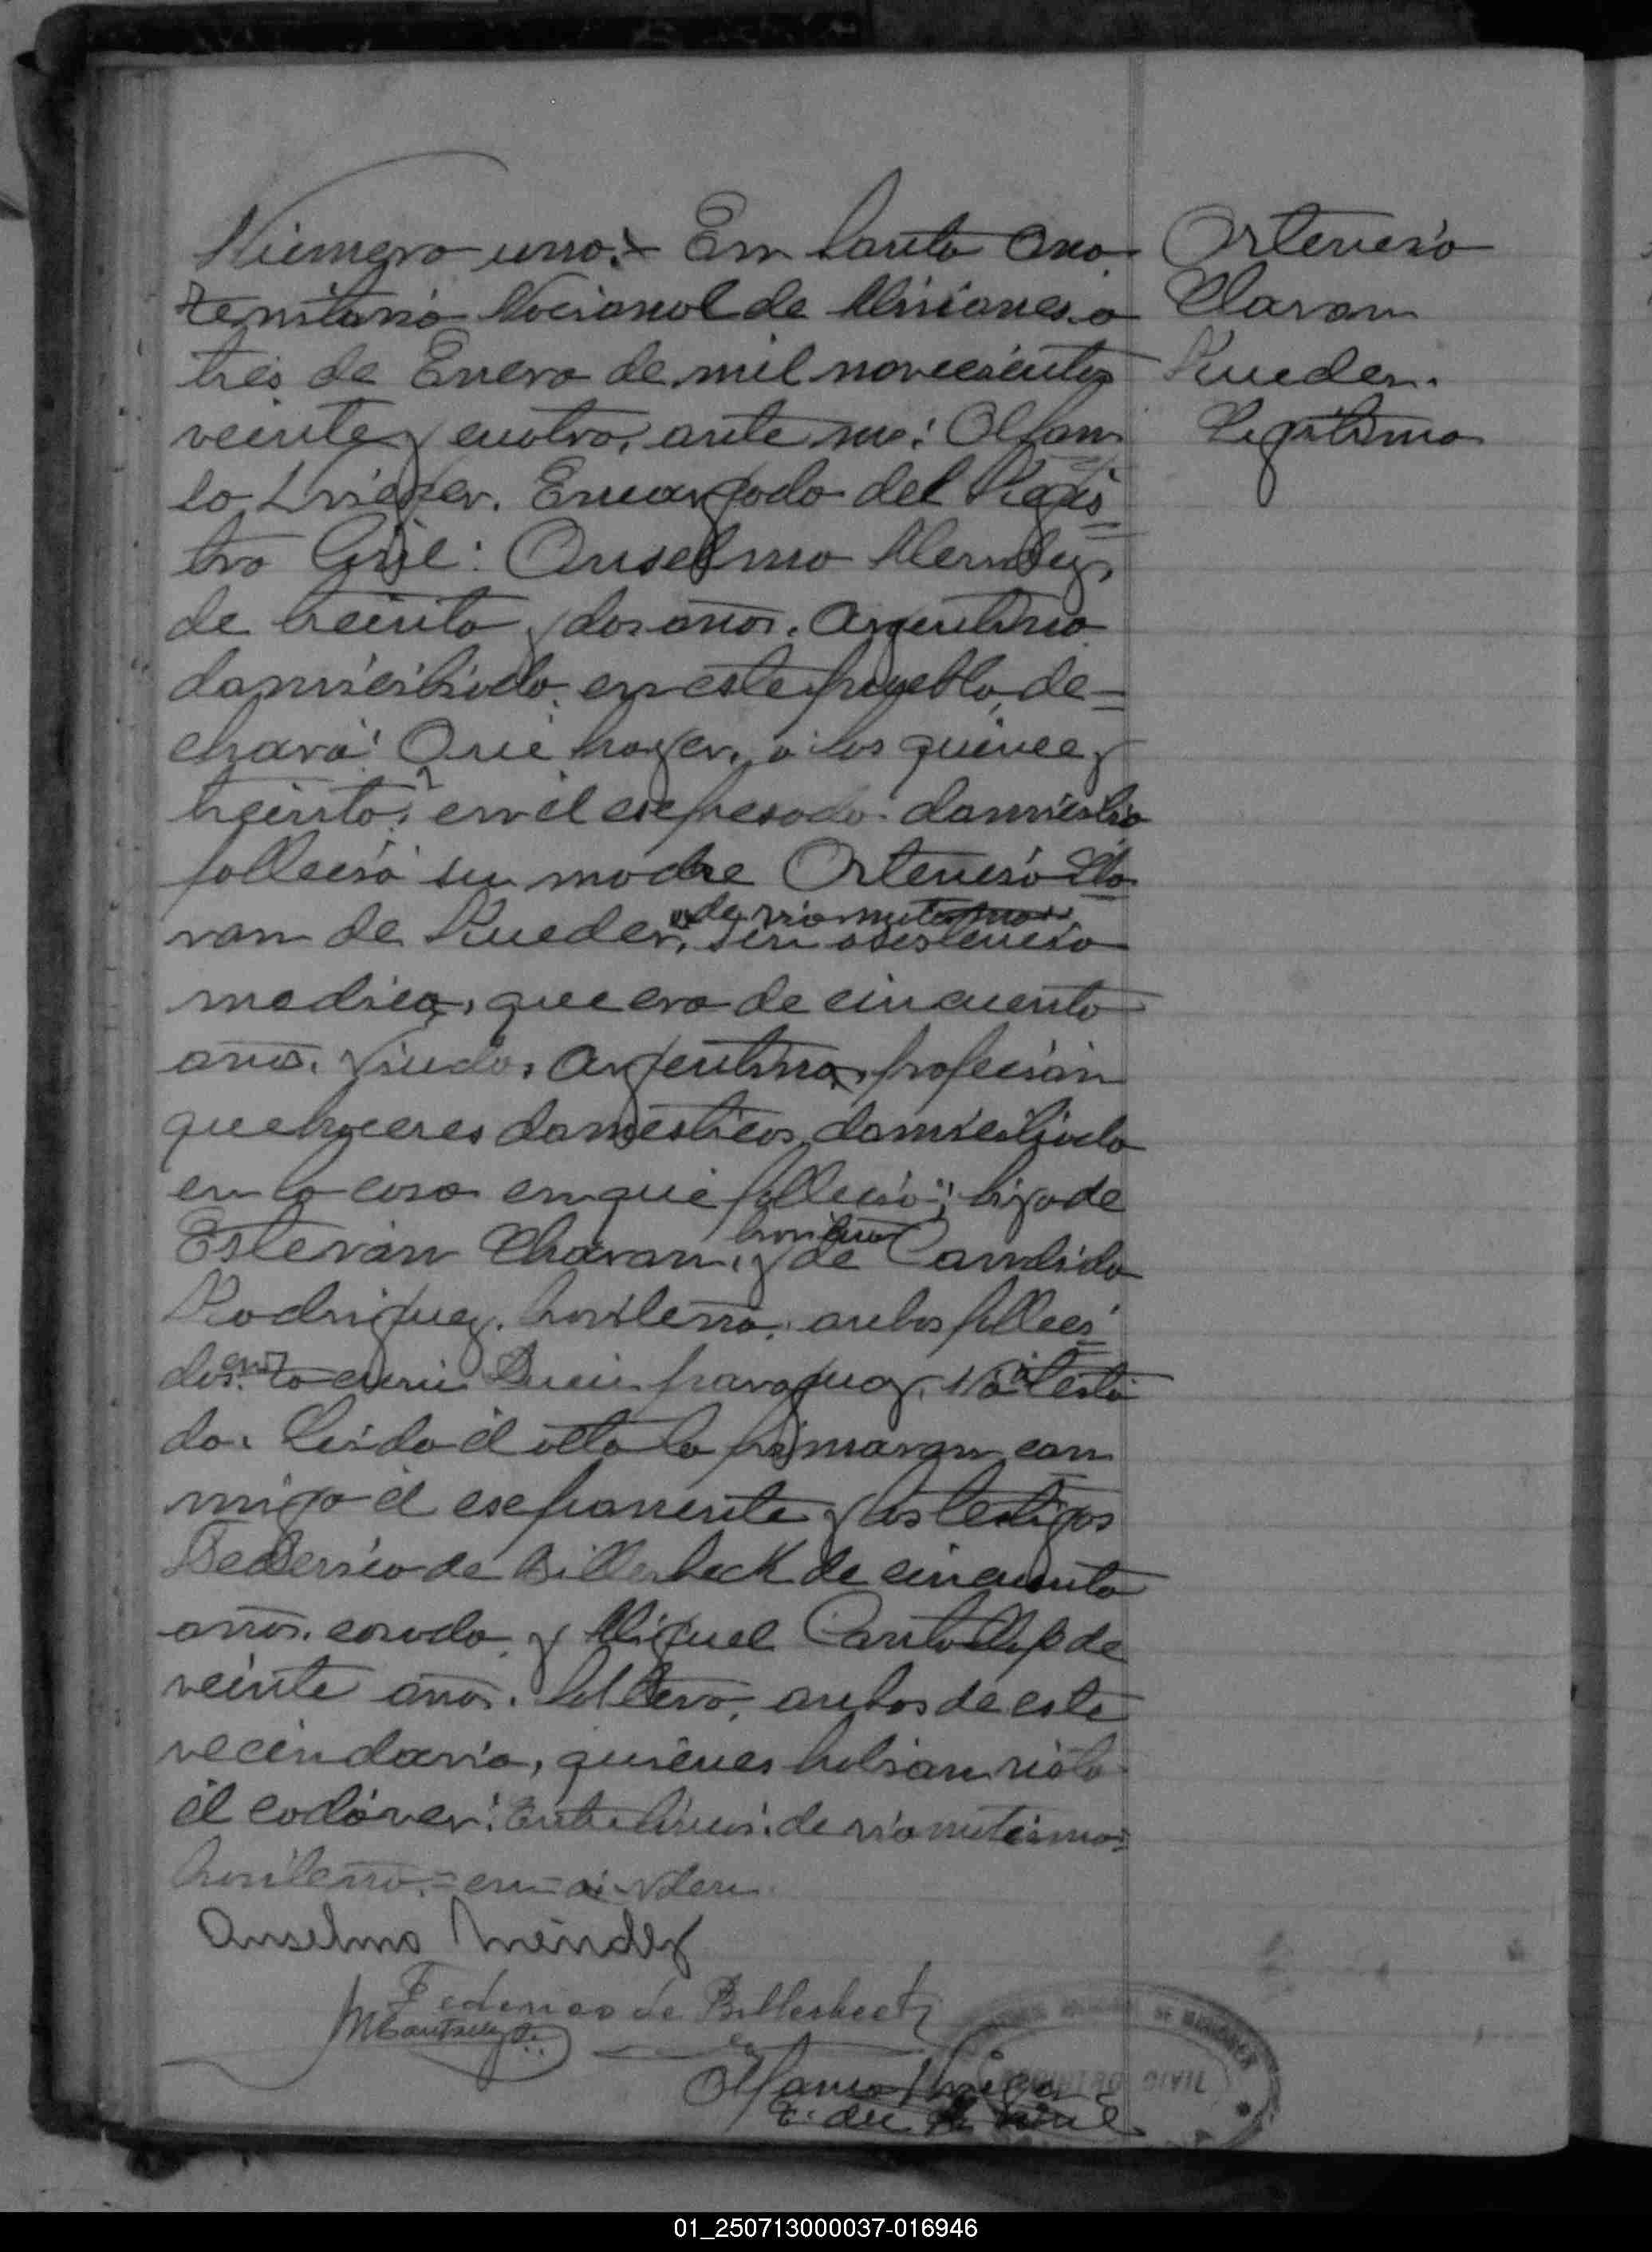 Número uno.- En Santa Ana
territorio Nacional de Misiones a
tres de Enero de mil novecientos
veinte y cuatro, ante mi: Alfon
so Krieger. Encargado del Regis
tro Civil: Anselmo Mendez,
de treinta y dos años. Argentino
domiciliado, en este pueblo, de-
claró: Que hayer, a las quince y
treinta, en el espresado domicilio
falleció su madre Ortencia Cla
van de Rueder, de rio mitismos, sin asistencia
medica, que era de cincuenta
años. Viuda, Argentina, profecion
quehaceres domesticos, domiciliada
en la casa en que falleció; hija de
Estevan Chavan, brasilero y de Candida
Rodriguez, brasilera, ambos falleci
dos. en paraguay, No a testa
do. Leido el acta la firmaron con
migo el esponente y los testigos
Federico de Billerbeck de cincuenta
años. casado y Miguel de
veinte años. soltero, ambos de este
vecindario, quienes habian visto
el cadáver. Entre lineas: de rio mitismos
brasilero.=en=ai=Valen.
Anselmo Méndez
Federico de Billerbeck
E. del R. Civil
Ortencia
Clavan
Rueder.
Legitima
01_250713000037-016946